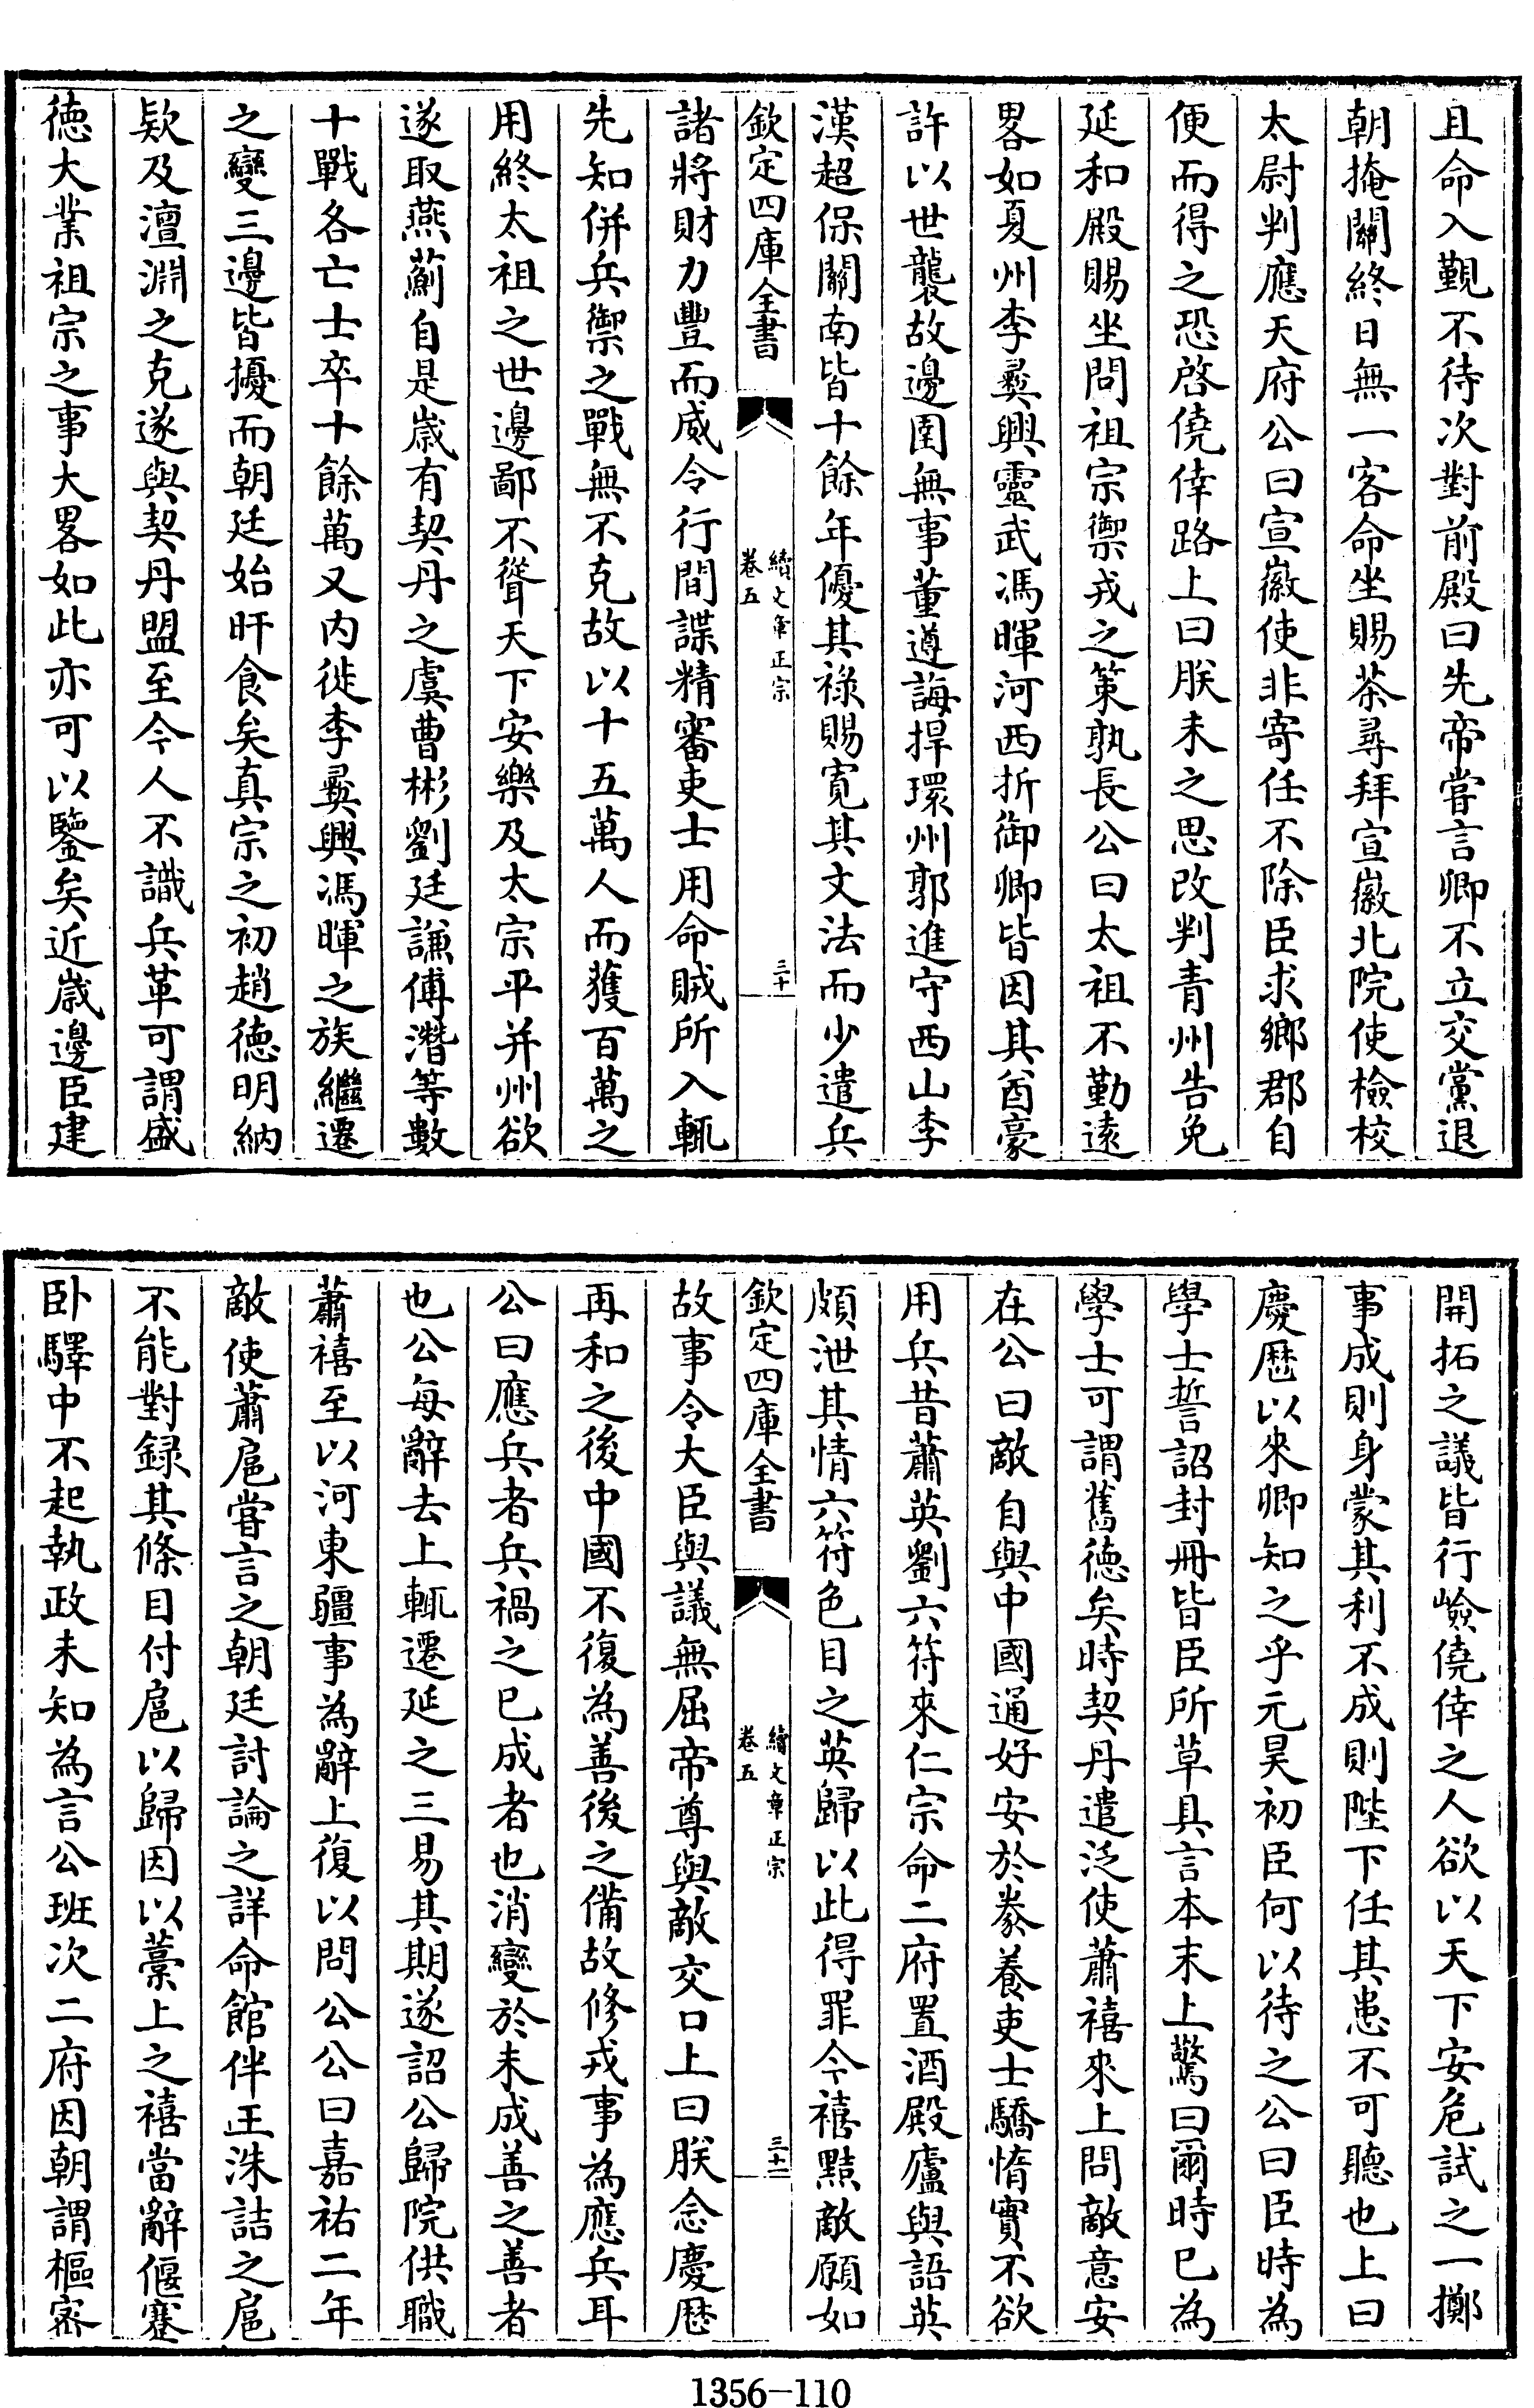 且命入覲不待次對前殿曰先帝嘗言卿不立交黨退
朝掩關終日無一客命坐賜茶尋拜宣徽北院使檢校
太尉判應天府公曰宣徽使非寄任不除臣求鄉郡自
便而得之恐啓僥倖路上曰朕未之思改判青州告免
延和殿賜坐問祖宗禦戎之策孰長公曰太祖不勤遠
畧如夏州李彞興靈武馮暉河西折御卿皆因其酋豪
許以世襲故邊圉無事董遵誨捍環州郭進守西山李
漢超保關南皆十餘年優其祿賜寛其文法而少遣兵
欽定四庫全書
續文章正宗
卷五
三十
諸將財力豐而威令行間諜精審吏士用命賊所入輒
先知併兵禦之戰無不克故以十五萬人而獲百萬之
用終太祖之世邊鄙不聳天下安樂及太宗平并州欲
遂取燕薊自是歲有契丹之虞曹彬劉廷謙傅潛等數
十戰各亡士卒十餘萬又内徙李彞興馮暉之族繼遷
之變三邊皆擾而朝廷始旰食矣真宗之初趙德明納
欵及澶淵之克遂與契丹盟至今人不識兵革可謂盛
德大業祖宗之事大畧如此亦可以鑒矣近歲邊臣建
開拓之議皆行嶮僥倖之人欲以天下安危試之一擲
事成則身蒙其利不成則陛下任其患不可聽也上曰
慶厯以來卿知之乎元昊初臣何以待之公曰臣時為
學士誓詔封冊皆臣所草具言本末上驚曰爾時已為
學士可謂舊德矣時契丹遣泛使蕭禧來上問敵意安
在公曰敵自與中國通好安於豢養吏士驕惰實不欲
用兵昔蕭英劉六符來仁宗命二府置酒殿廬與語英
頗泄其情六符色目之英歸以此得罪今禧黠敵願如
欽定四庫全書
續文章正宗
卷五
三十一
故事令大臣與議無屈帝尊與敵交口上曰朕念慶厯
再和之後中國不復為善後之備故修戎事為應兵耳
公曰應兵者兵禍之已成者也消變於未成善之善者
也公每辭去上輒遷延之三易其期遂詔公歸院供職
蕭禧至以河東疆事為辭上復以問公公曰嘉祐二年
敵使蕭扈嘗言之朝廷討論之詳命館伴王洙詰之扈
不能對録其條目付扈以歸因以藁上之禧當辭偃蹇
卧驛中不起執政未知為言公班次二府因朝謂樞宻
1356-110